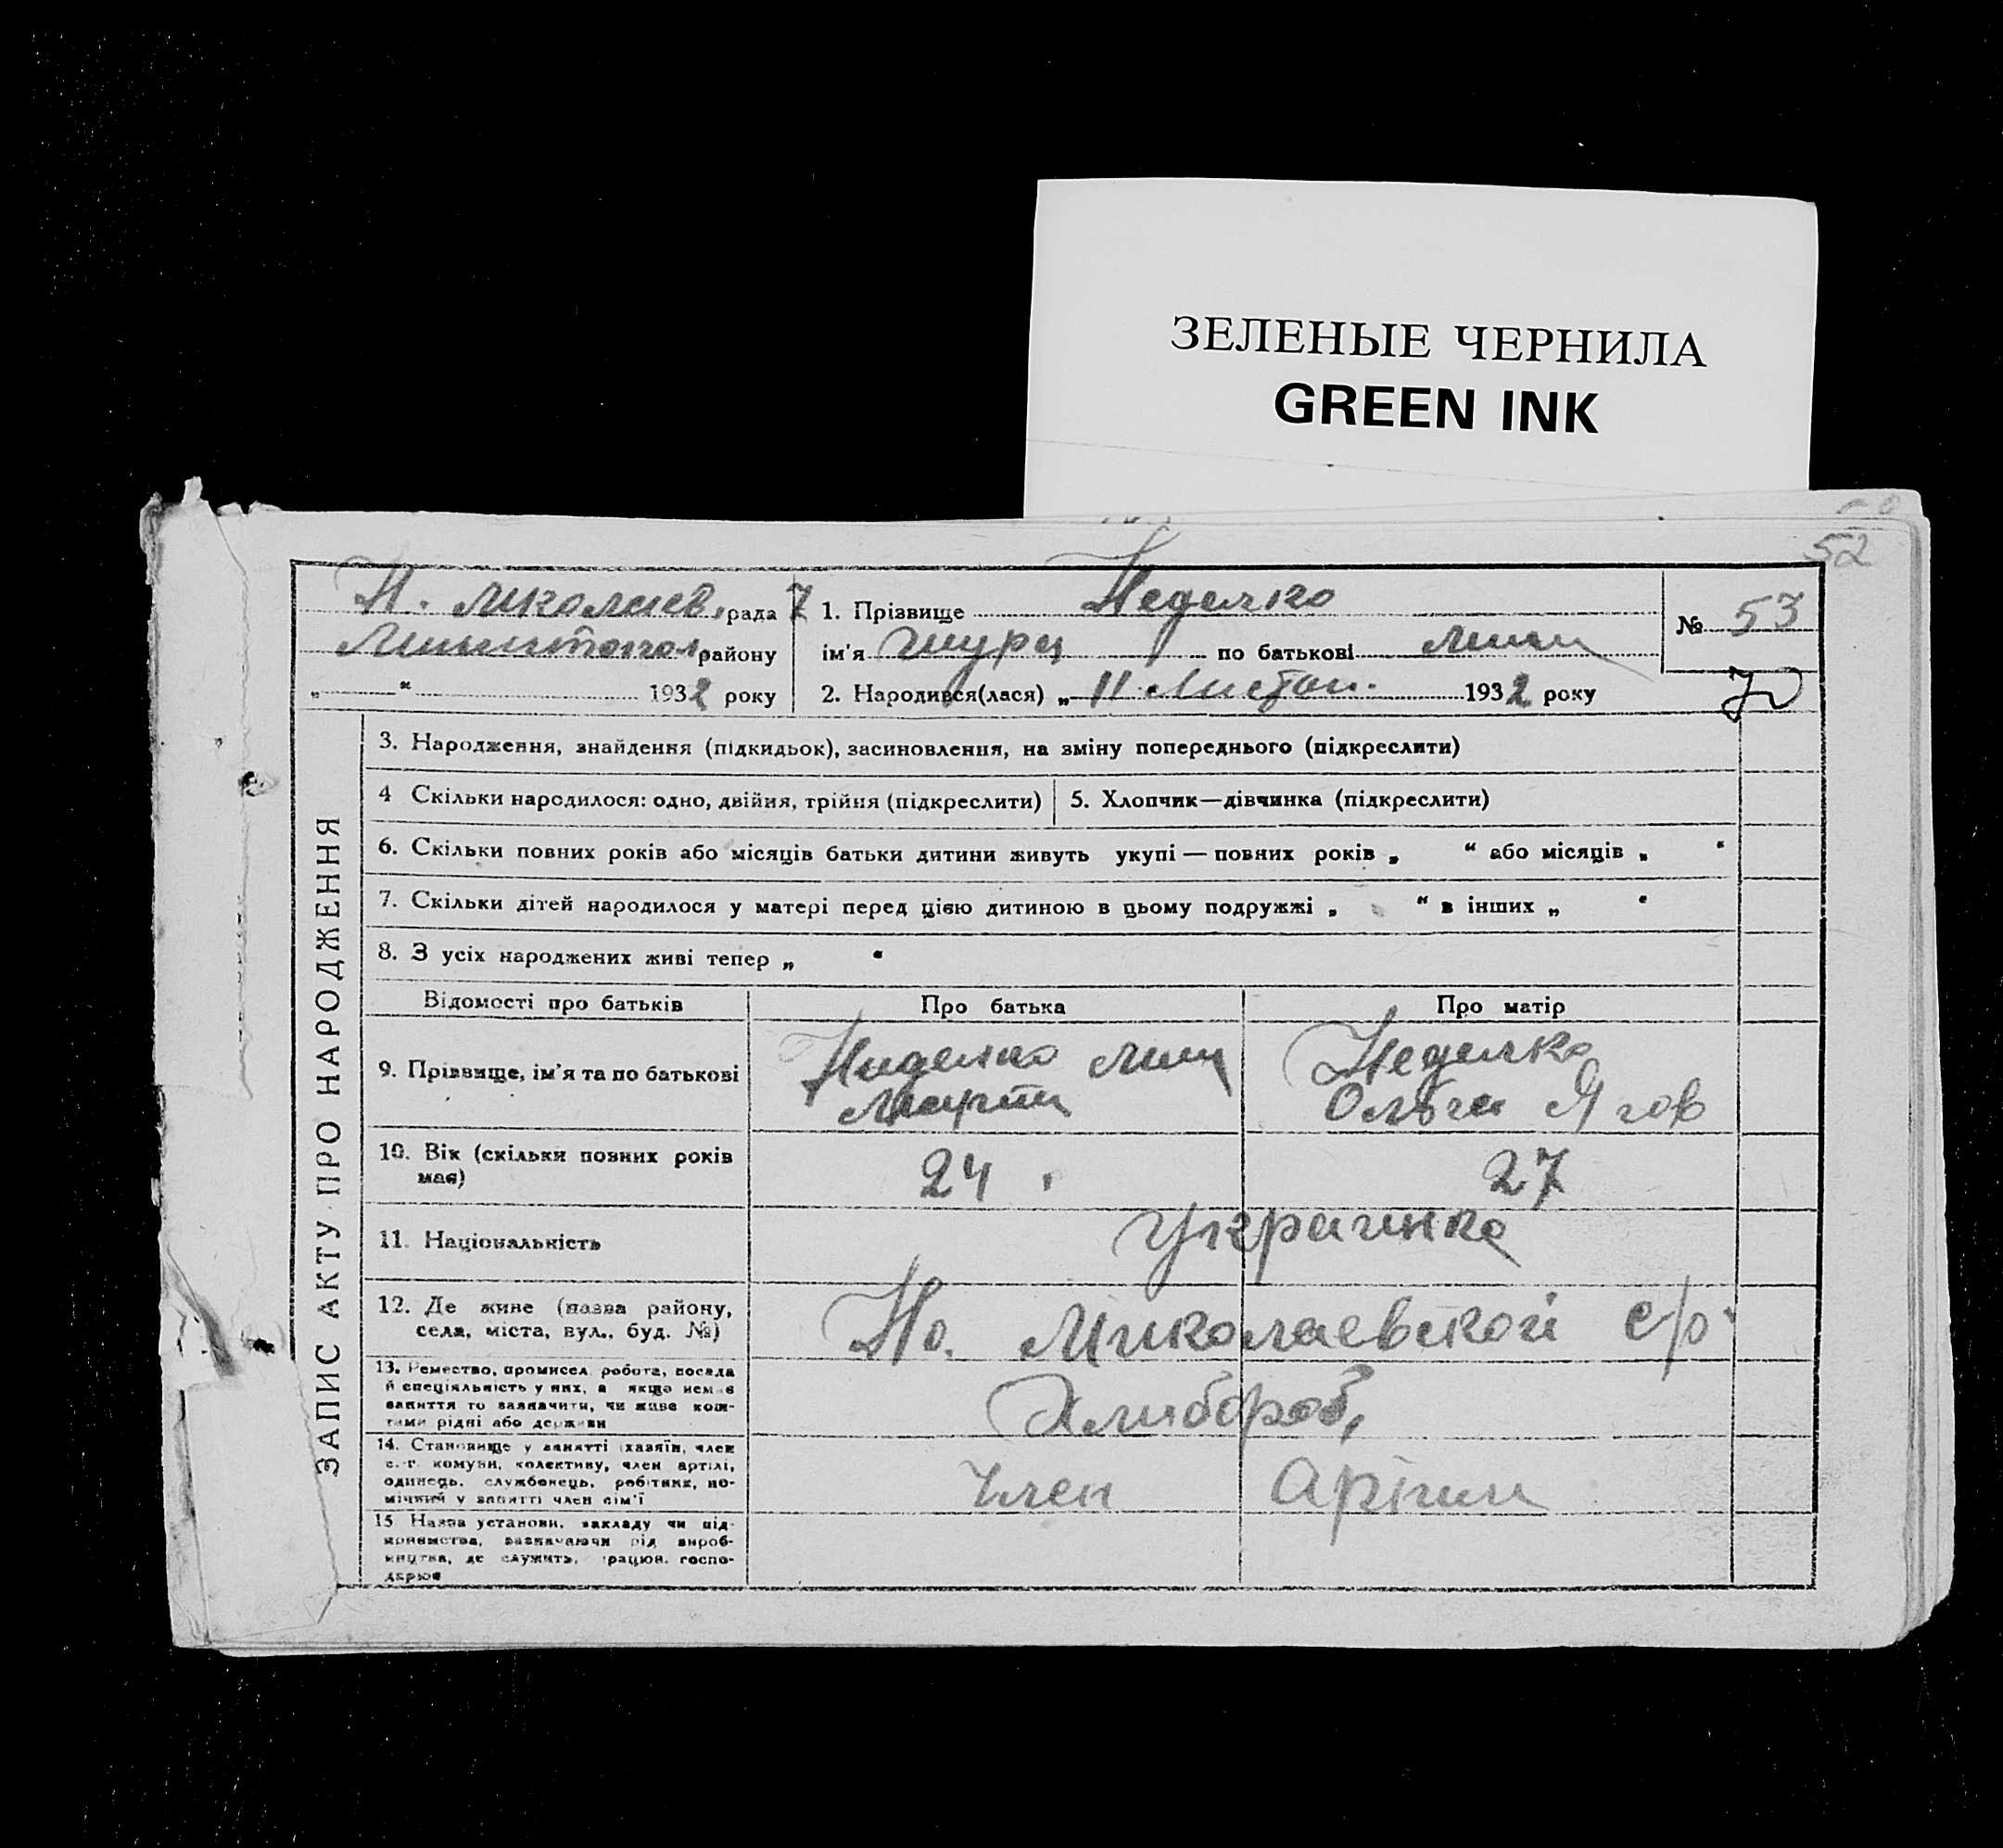 ЗЕЛЕНЫЕ ЧЕРНИЛА
GREEN INK
52
Н. Миколаев. рада 7
району
„ “ 1932 року
1. Прізвище Неделко
ім'я Шура по батькові Мит
2. Народився(лася) „ 11 Листоп. 1932 року
№ 53
70
ЗАПИС АКТУ ПРО НАРОДЖЕННЯ
3. Народження, знайдення (підкидьок), засиновлення, на зміну попереднього (підкреслити)
4 Скільки народилося: одно, двійня, трійня (підкреслити)
5. Хлопчик—дівчинка (підкреслити)
6. Скільки повних років або місяців батьки дитини живуть укупі — повних років „ “ або місяців „ “
7. Скільки дітей народилося у матері перед цією дитиною в цьому подружжі „ “ в інших „ “
8. З усіх народжених живі тепер „ “
Відомості про батьків Про батька Про матір
9. Прізвище, ім'я та по батькові
Ниделко
Неделко
Ольга Яков
10. Вік (скільки повних років
має)
24 27
11. Національність Украинка
12. Де живе (назва району,
села, міста, вул., буд. №)
Но. Миколаевской с/р
13. Ремество, промисел, робота, посада
й спеціяльність у них, а якщо немає
заняття то зазначити, чи живе кош-
тами рідні або держави
Хлибороб,
14. Становище у занятті (хазяїн, член
с.-г. комуни, колективу, член артілі,
одинець, службовець, робітник, по-
мічний у занятті член сім'ї
Член Артили
15 Назва установи, закладу чи під-
приємства, зазначаючи рід вироб-
ництва, де служить, працює, госпо-
дарює